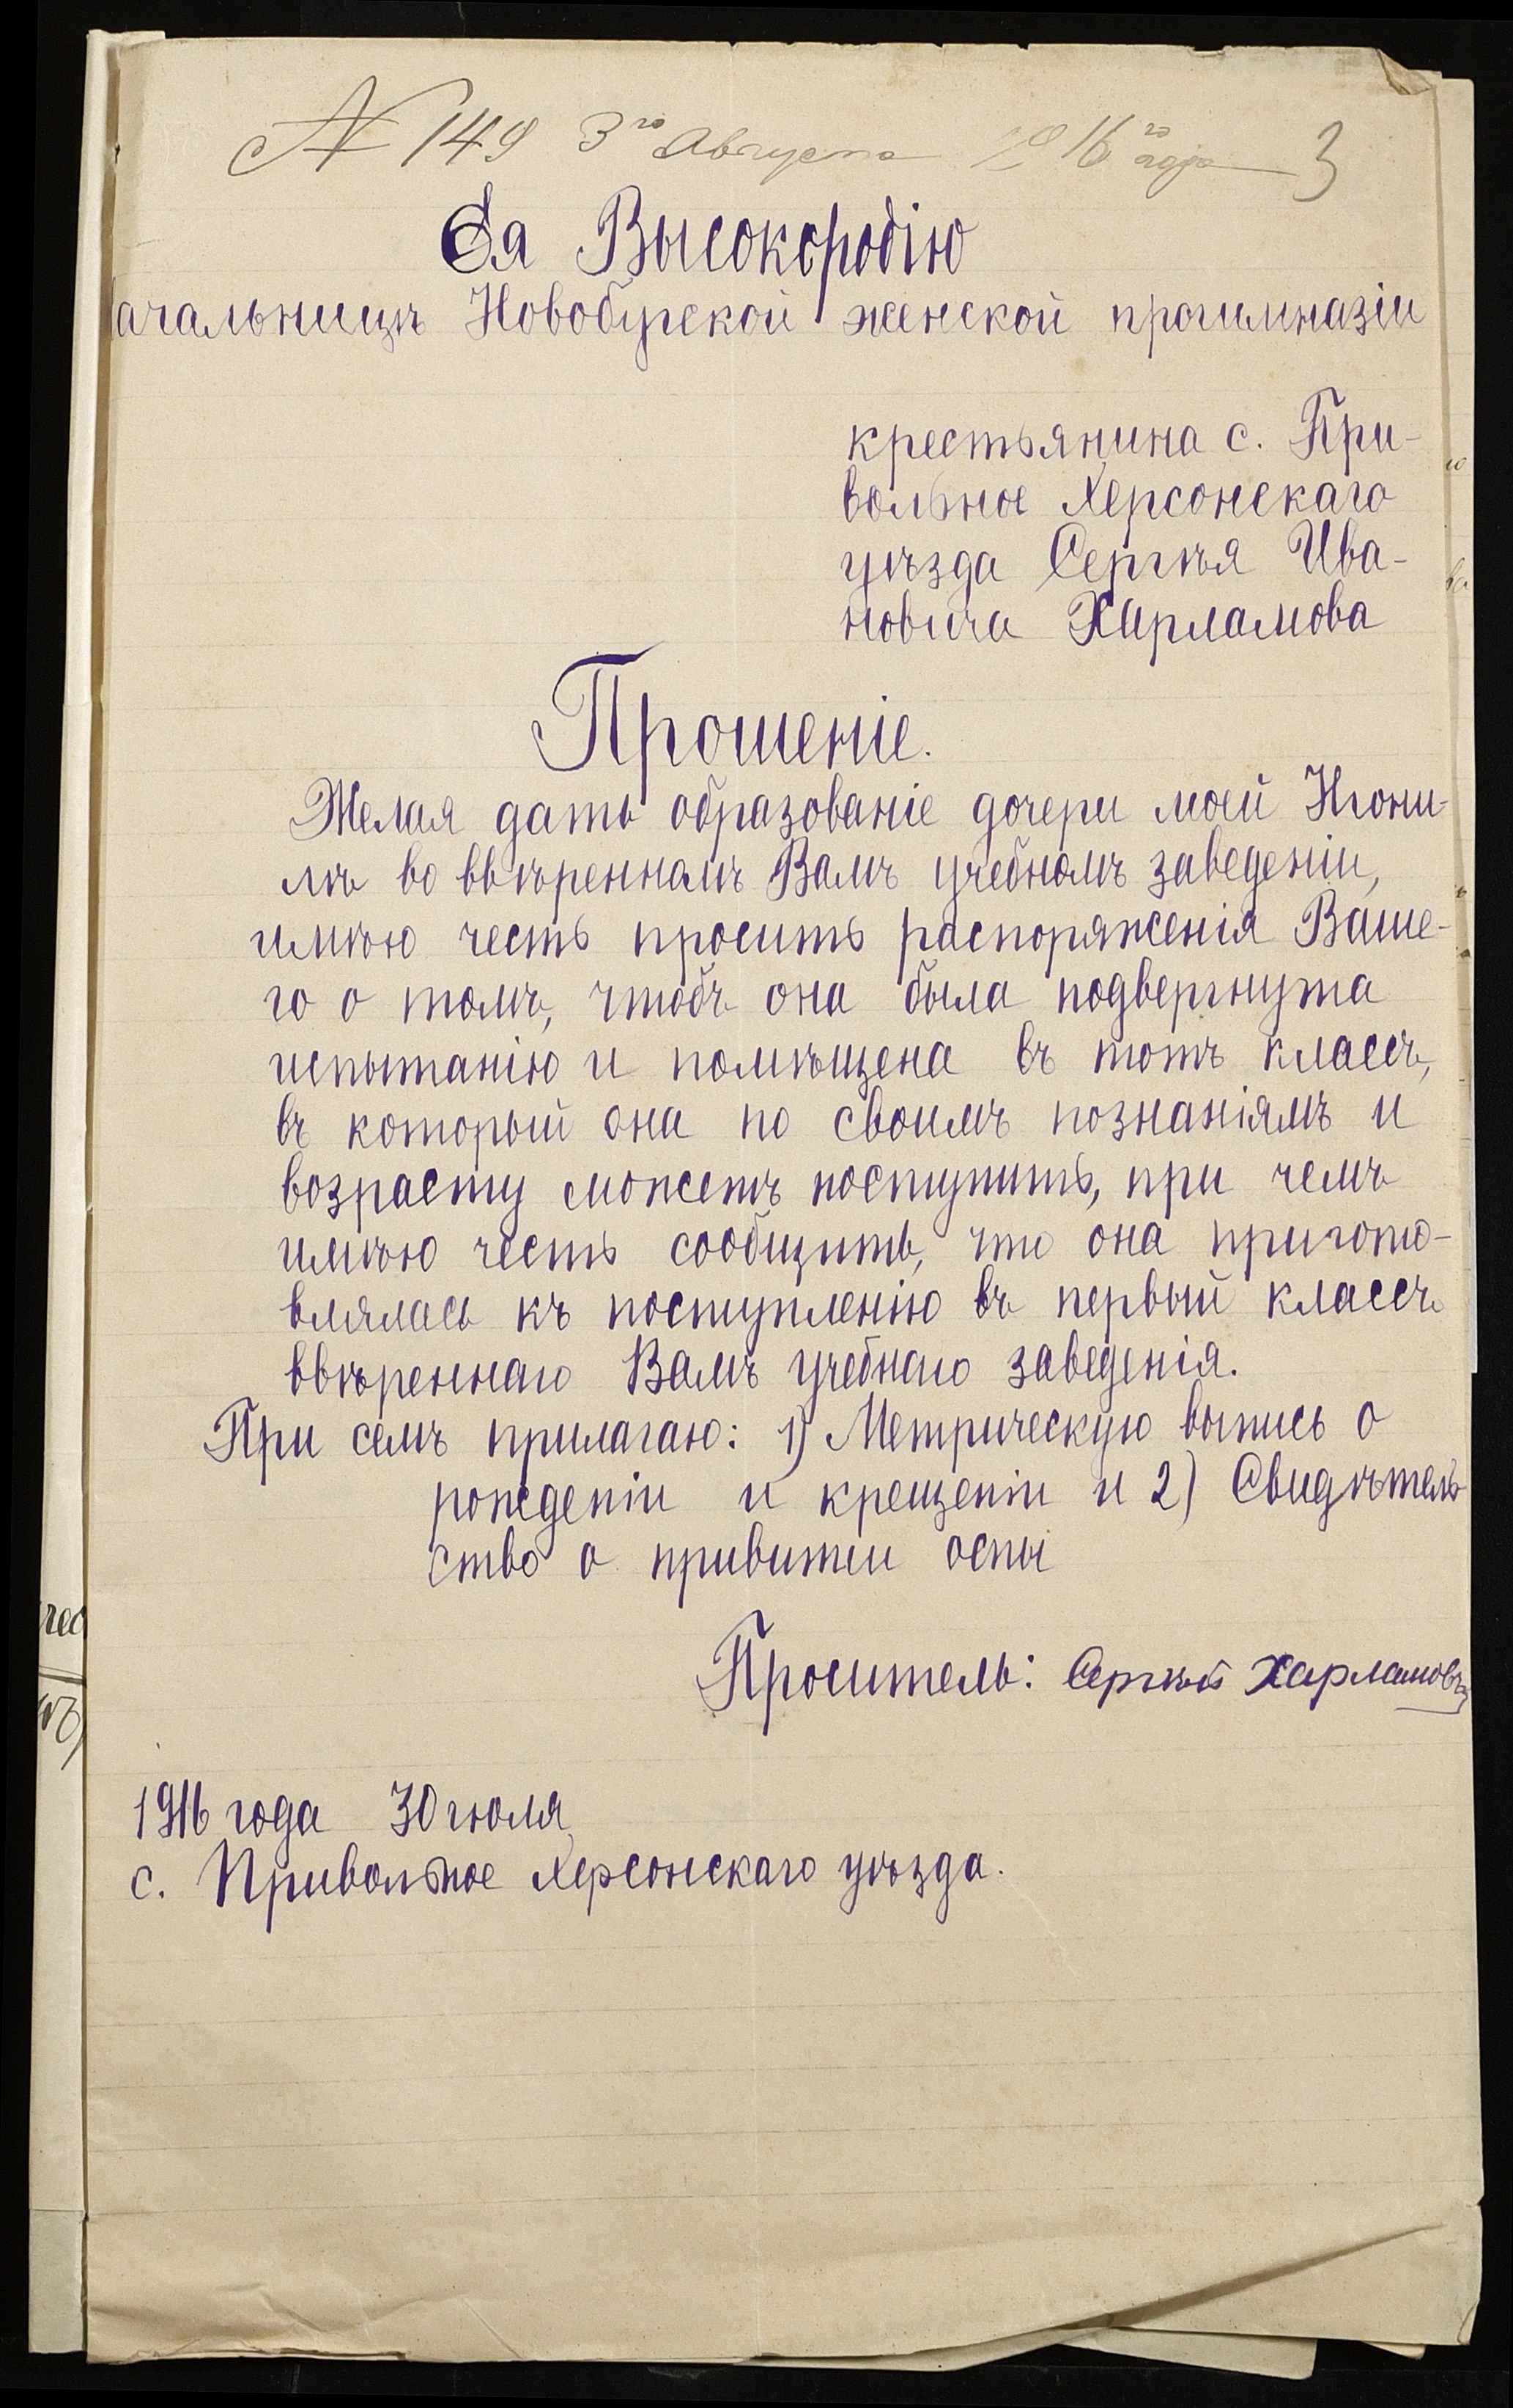 № 149 3го Августа 1916го года 3
Ея Высокородію
ачальницѣ Новобугской женской прогимназіи
крестьянина с. При-
вольное Херсонскаго
уѣзда Сергѣя Ива-
новича Харламова
Прошеніе.
Желая дать образованіе дочери моей Неони-
лѣ во ввѣренномъ Вамъ учебномъ заведеніи,
имѣю честь просить распоряженія Ваше-
го о томъ, чтобъ она была подвергнута
испытанію и помѣщена въ тотъ классъ,
въ который она по своимъ познаніямъ и
возрасту можетъ поступить, при чемъ
имѣю честь сообщить, что она пригото-
влялась къ поступленію въ первый классъ
ввѣреннаго Вамъ учебнаго заведенія.
При семъ прилагаю: 1) Метрическую выпись о
рожденіи и крещеніи и 2) Свидѣтель-
ство о привитіи оспы
Проситель: Сергѣй Харламовъ
1916 года 30 іюля
с. Привольное Херсонскаго уѣзда.